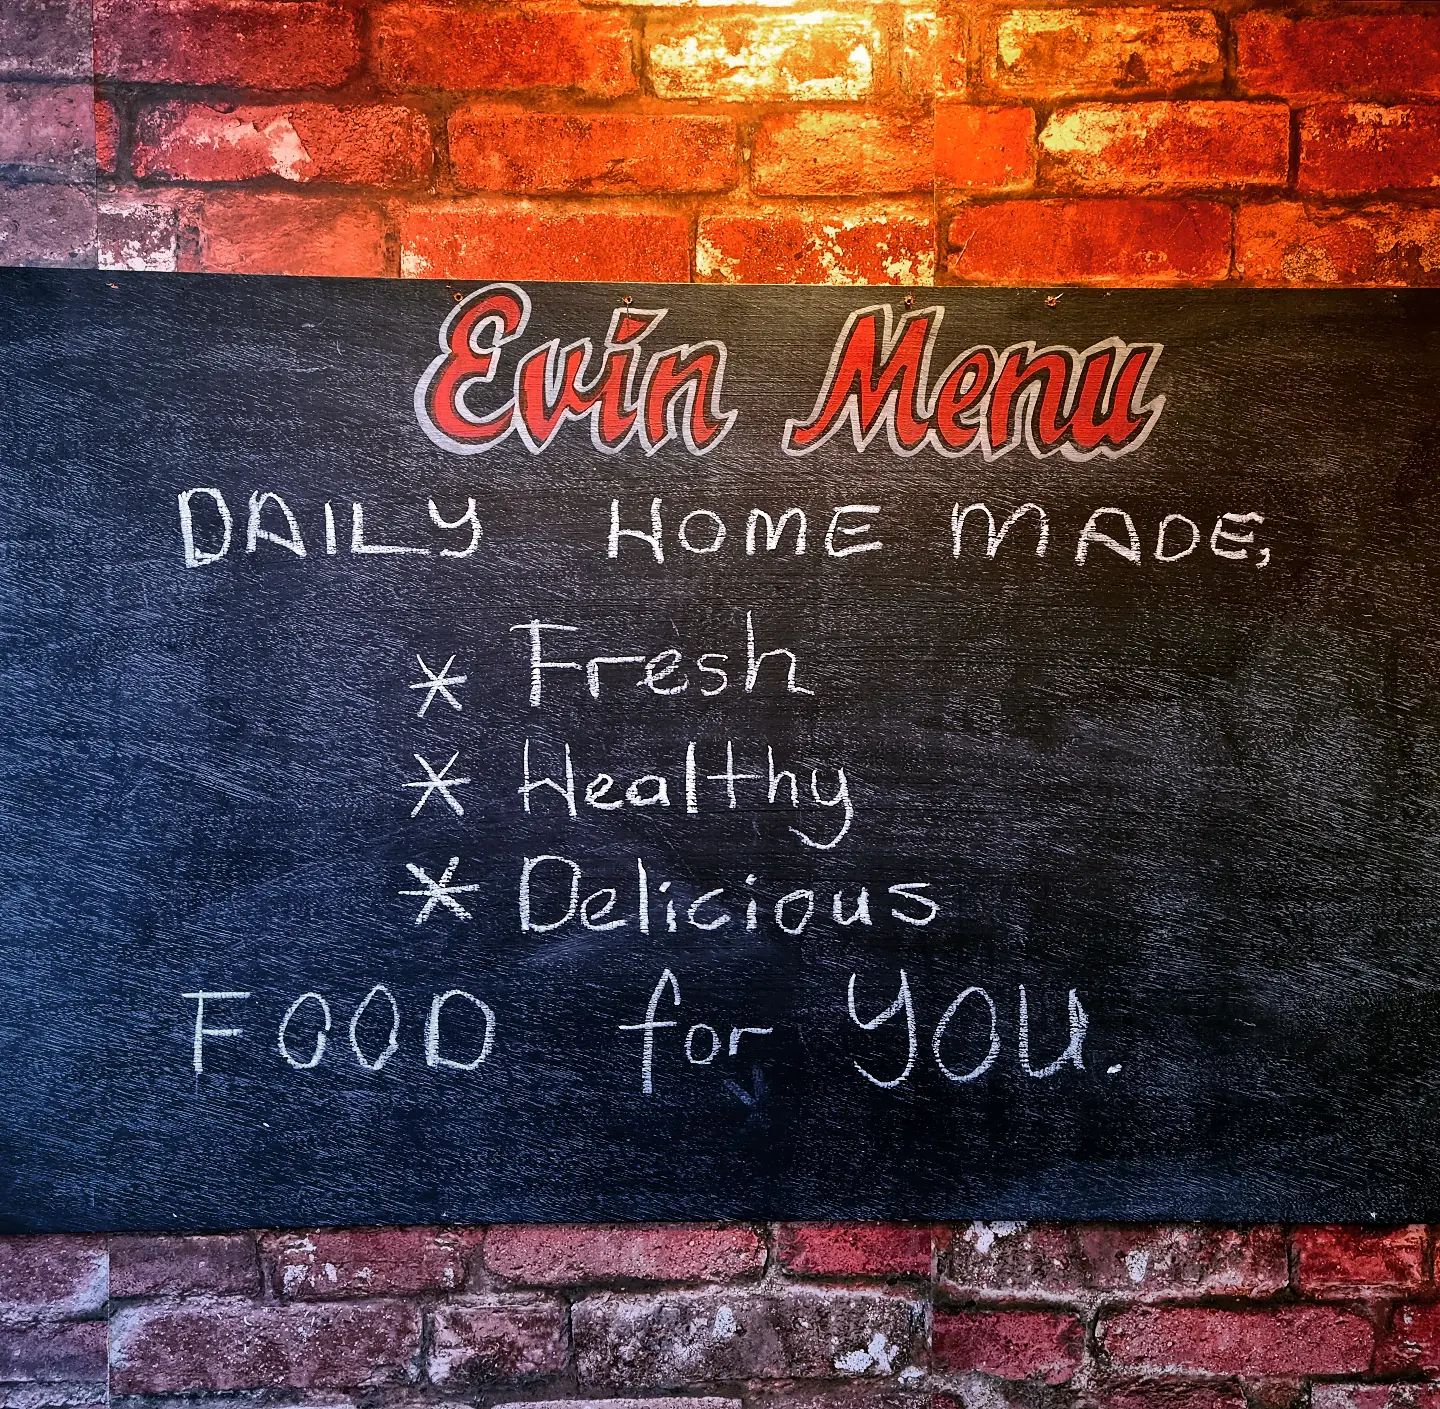 Evin Menu
DAILY HOME MADE,
* Fresh
* Healthy
* Delicious
FOOD for YOU.